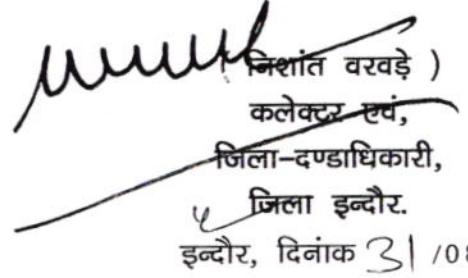 ( निशांत वरवड़े )
कलेक्टर एवं,
जिला-दण्डाधिकारी,
जिला इन्दौर.
इन्दौर, दिनांक 31 /0